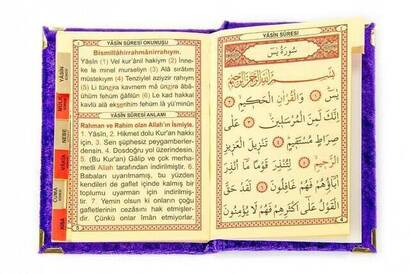 YÂSİN SÛRESİ OKUNUŞU
Bismillâhirrahmânirrahıym.
Yâsîn (1) Vel kur'ânil hakiym (2) İnne-
ke le minel murseliyn (3) Alâ sırâtım
müstekıym (4) Tenziylel aziyzir rahıym
(5) Li tünzira kavmem mâ ünzira âbâ-
ühüm fehüm ğâfilûn (6) Le kad hakkal
kavlü alâ ekserihim fehüm lâ yü'minûn
YÂSİN SÛRESİ ANLAMI
Rahman ve Rahim olan Allah'ın ismiyle.
1. Yâsîn, 2. Hikmet dolu Kur'an hakkı
için, 3. Sen şüphesiz peygamberler-
densin. 4. Dosdoğru yol üzerindesin.
5. (Bu Kur'an) Gâlip ve çok merha-
metli Allah tarafından indirilmiştir. 6.
Babaları uyarılmamış, bu yüzden
kendileri de gaflet içinde kalmış bir
toplumu uyarman için indirilmiş-
tir. 7. Yemin olsun ki onların çoğu
gafletlerinin cezasını hak etmişler-
dir. Çünkü onlar îman etmiyorlar.
YÂSİN
MÜLK
NEBE
VÂKIA
CUMA
سُورَةُ يٰسٓ
بِسْمِ اللّٰهِ الرَّحْمٰنِ الرَّحِيمِ
يٰسٓ ﴿١﴾ وَالْقُرْاٰنِ الْحَكِيمِ ﴿٢﴾
اِنَّكَ لَمِنَ الْمُرْسَلِينَ ﴿٣﴾ عَلٰى
صِرَاطٍ مُسْتَقِيمٍ ﴿٤﴾ تَنْزِيلَ الْعَزِيزِ
الرَّحِيمِ ﴿٥﴾ لِتُنْذِرَ قَوْمًا مَا اُنْذِرَ
اٰبَاؤُهُمْ فَهُمْ غَافِلُونَ ﴿٦﴾ لَقَدْ حَقَّ
الْقَوْلُ عَلٰى اَكْثَرِهِمْ فَهُمْ لَا يُؤْمِنُونَ